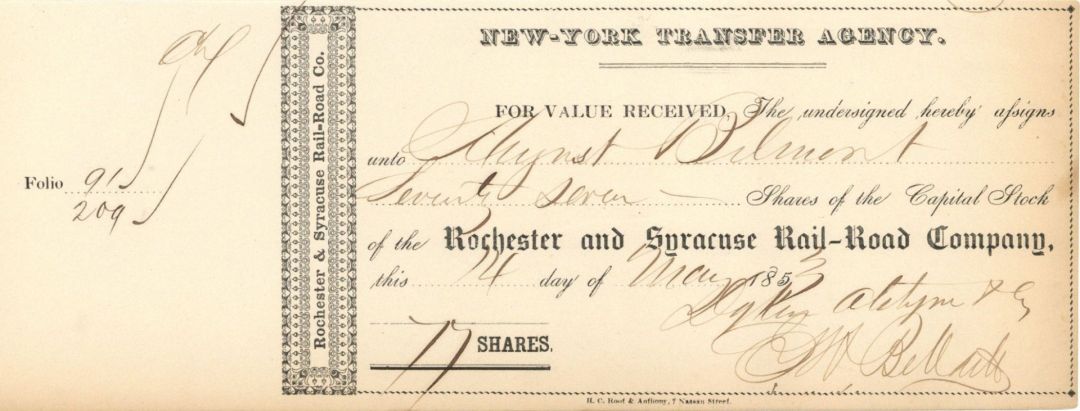 Folio 91
209
Rochester & Syracuse Rail-Road Co.
NEW-YORK TRANSFER AGENCY.
FOR VALUE RECEIVED, The undersigned hereby assigns
unto August Belmont
Seventy seven Shares of the Capital Stock
of the Rochester and Syracuse Rail-Road Company,
this 24 day of May 1853
77 SHARES.
H. C. Root & Anthony, 7 Nassau Street.